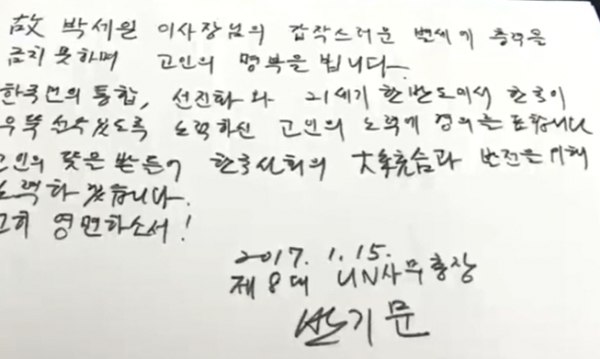 故 박세일 이사장님의 갑작스러운 별세에 충격을
금치 못하며 고인의 명복을 빕니다.
한국민의 통합, 선진화와 21세기 한반도에서 한국이
우뚝 설수있도록 노력하신 고인의 노력에 경의를 표합니다
고인의 뜻을 받들어 한국사회의 大統合과 발전을 위해
노력하겠습니다.
고히 영면하소서!
2017. 1. 15.
제 8대 UN사무총장
반기문